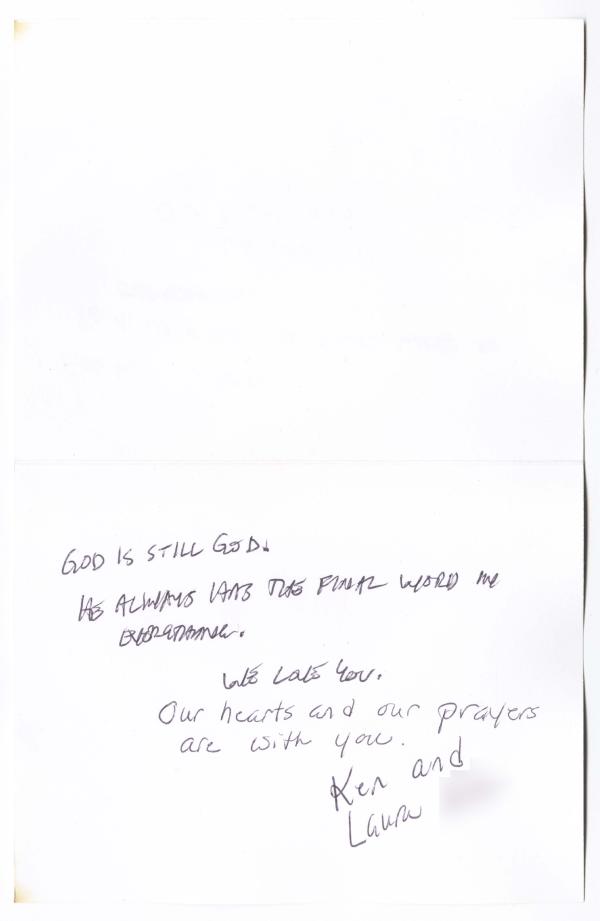 GOD IS STILL GOD.
HE ALWAYS HAS THE FINAL WORD IN
EVERYTHING.
WE LOVE YOU.
Our hearts and our prayers
are with you.
Ken and
Laura